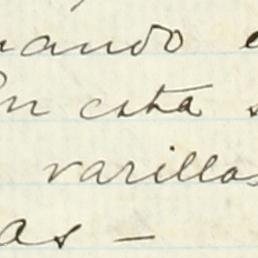 uando e
En esta s
varillas
as —